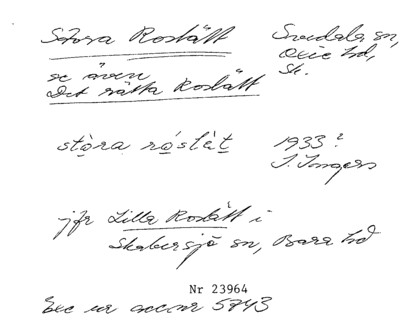 Stora Roslätt
Svedala sn,
Oxie hd,
Sk.
se även
Det rätta Roslätt
stòra ròslèt
1933?
I. Ingers
jfr Lilla Roslätt i
Skabersjö sn, Bara hd
Nr 23964
Exc ur acc nr 5743